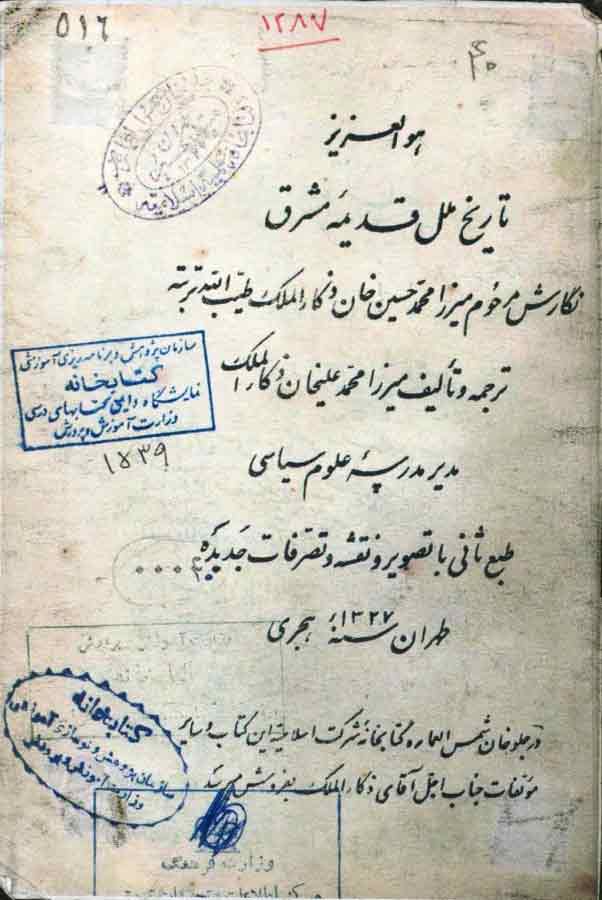 ۵۱۶
۱۲۸۷
هو العزیز
تاریخ ملل قدیمهٔ مشرق
نگارش مرحوم میرزا محمد حسین خان ذکاء الملک طیب الله تربته
ترجمه و تألیف میرزا محمد علیخان ذکاء الملک
سازمان پژوهش و برنامه‌ریزی آموزشی
کتابخانه
نمایشگاه دائمی کتابهای درسی
وزارت آموزش و پرورش
۱۸۳۹
مدیر مدرسهٔ علوم سیاسی
طبع ثانی با تصویر و نقشه و تصرفات جدیده
طهران سنهٔ ۱۳۲۷ هجری
در جلوخان شمس العماره کتابخانهٔ شرکت اسلامیه این کتاب و سایر
مؤلفات جناب اجل آقای ذکاء الملک بفروش میرسد
کتابخانه
سازمان پژوهش و نوسازی آموزشی
وزارت آموزش و پرورش
وزارت فرهنگ